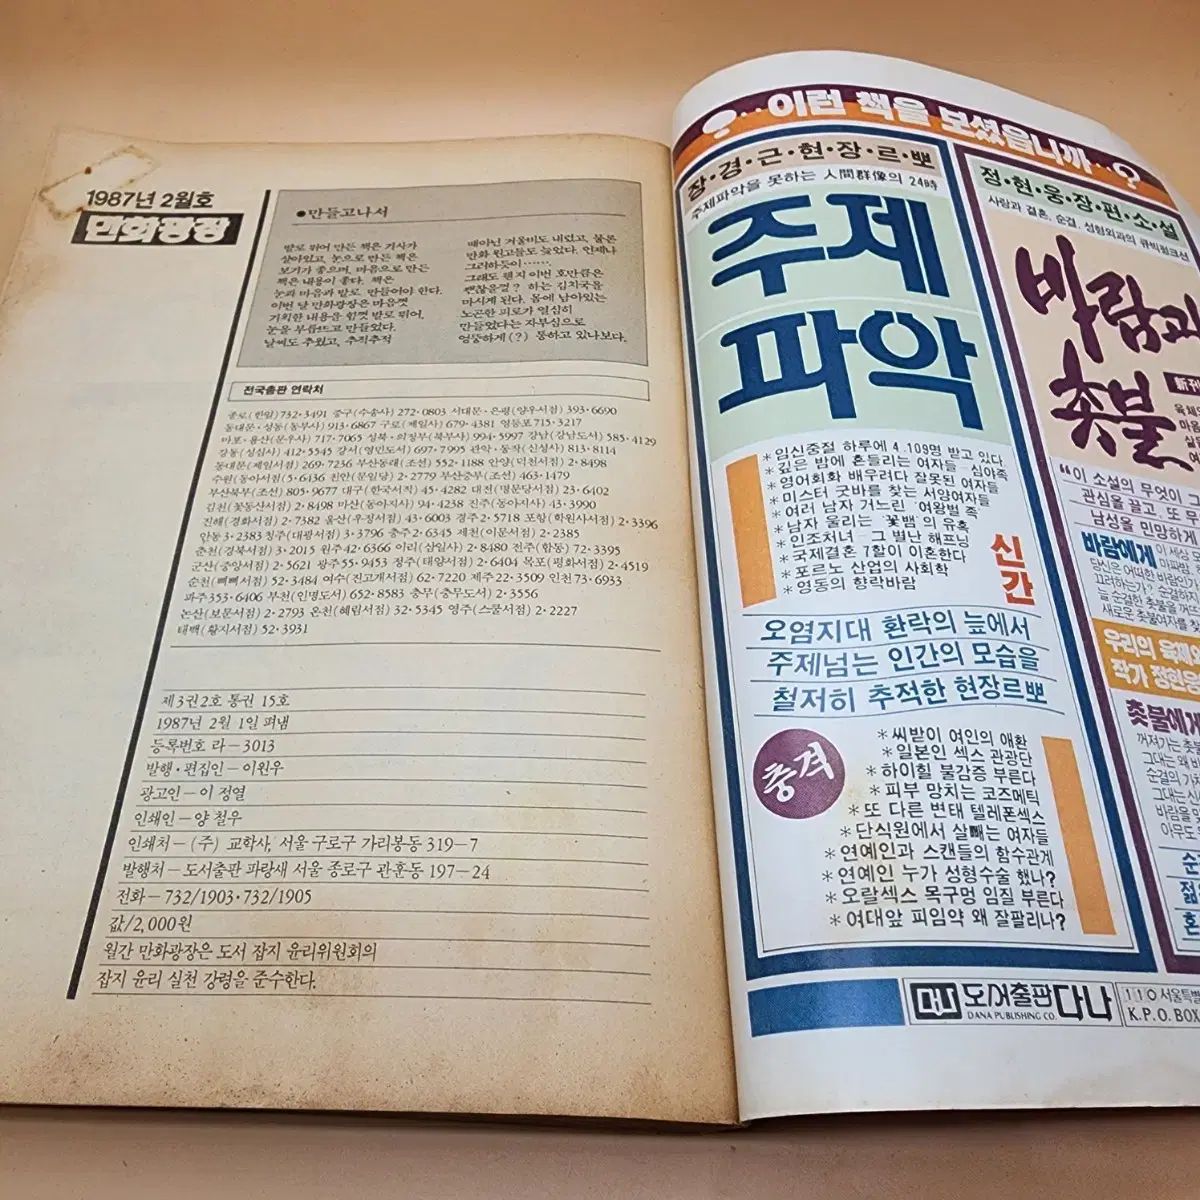 1987년 2월호
만화광장
●만들고나서
발로 뛰어 만든 책은 기사가
살아있고, 눈으로 만든 책은
보기가 좋으며, 마음으로 만든
책은 내용이 좋다. 책은
눈과 마음과 발로 만들어야 한다.
이번 달 만화광장은 마음껏
기획한 내용을 힘껏 발로 뛰어,
눈을 부릅뜨고 만들었다.
날씨도 추웠고, 추적추적
때아닌 겨울비도 내렸고, 물론
만화 원고들도 늦었다. 언제나
그러하듯이……
그래도 웬지 이번 호만큼은
괜찮을걸? 하는 김치국을
마시게 된다. 몸에 남아있는
노곤한 피로가 열심히
만들었다는 자부심으로
엉뚱하게(?) 통하고 있나보다.
전국총판 연락처
종로(한일)732·3491 중구(수송사) 272·0803 서대문·은평(양우서점) 393·6690
동대문·성동(동부사) 913·6867 구로(제일사) 679·4381 영등포 715·3217
마포·용산(문우사) 717·7065 성북·의정부(북부사) 994·5997 강남(강남도서) 585·4129
강동(성심사) 412·5545 강서(영민도서) 697·7995 관악·동작(신성사) 813·8114
동대문(제일서점) 269·7236 부산동래(조선) 552·1188 안양(덕천서점) 2·8498
수원(동아서점)5·6436 천안(문일당) 2·2779 부산중부(조선) 463·1479
부산북부(조선) 805·9677 대구(한국서적) 45·4282 대전(명문당서점) 23·6402
김천(꽃동산서점) 2·8498 마산(동아사) 94·4238 진주(동아사) 43·3990
진해(경화서점) 2·7382 울산(우정서점) 43·6003 경주 2·5718 포항(학원사서점) 2·3396
안동 3·2383 청주(대광서점) 3·3796 충주 2·6345 제천(이문서점) 2·2385
춘천(경북서점) 3·2015 원주 42·6366 이리(삼일사) 2·8480 전주(합동) 72·3395
군산(중앙서점) 2·5621 광주 55·9453 정주(태양서점) 2·6404 목포(평화서점) 2·4519
순천(삐삐서점) 52·3484 여수(진고개서점) 62·7220 제주 22·3509 인천 73·6933
파주353·6406 부천(인명도서) 652·8583 충무(충무도서) 2·3556
논산(보문서점) 2·2793 온천(혜림서점) 32·5345 영주(스쿨서점) 2·2227
태백(황지서점) 52·3931
제3권2호 통권 15호
1987년 2월 1일 펴냄
등록번호 라-3013
발행·편집인-이원우
광고인-이 정열
인쇄인-양 철우
인쇄처-(주) 교학사, 서울 구로구 가리봉동 319-7
발행처-도서출판 파랑새 서울 종로구 관훈동 197-24
전화-732/1903·732/1905
값/2,000원
월간 만화광장은 도서 잡지 윤리위원회의
잡지 윤리 실천 강령을 준수한다.
?··이런 책을 보셨읍니까··?
장·경·근·현·장·르·뽀
주제파악을 못하는 人間群像의 24時
주제
파악
*임신중절 하루에 4,109명 받고 있다
*깊은 밤에 흔들리는 여자들―심야족
*영어회화 배우러다 잘못된 여자들
*미스터 굿바를 찾는 서양여자들
*여러 남자 거느린 여왕벌 족
*남자 울리는 '꽃뱀'의 유혹
*인조처녀―그 별난 해프닝
*국제결혼 7할이 이혼한다
*포르노 산업의 사회학
*영동의 향락바람
신간
오염지대 환락의 늪에서
주제넘는 인간의 모습을
철저히 추적한 현장르뽀
충격
*씨받이 여인의 애환
*일본인 섹스 관광단
*하이힐 불감증 부른다
*피부 망치는 코즈메틱
*또 다른 변태 텔레폰섹스
*단식원에서 살빼는 여자들
*연예인과 스캔들의 함수관계
*연예인 누가 성형수술 했나?
*오랄섹스 목구멍 임질 부른다
*여대앞 피임약 왜 잘팔리나?
정·현·웅·장·편·소·설
사람과 결혼, 순결, 성형외과의 큐빅핑크선
바람과
촛불
新刊
"이 소설의 무엇이 그
관심을 끌고, 또 무
남성을 민망하게
바람에게
우리의 육체와
작가 정현웅
촛불에게
도서출판 다나
DANA PUBLISHING CO.
110 서울특별
K.P.O. BOX